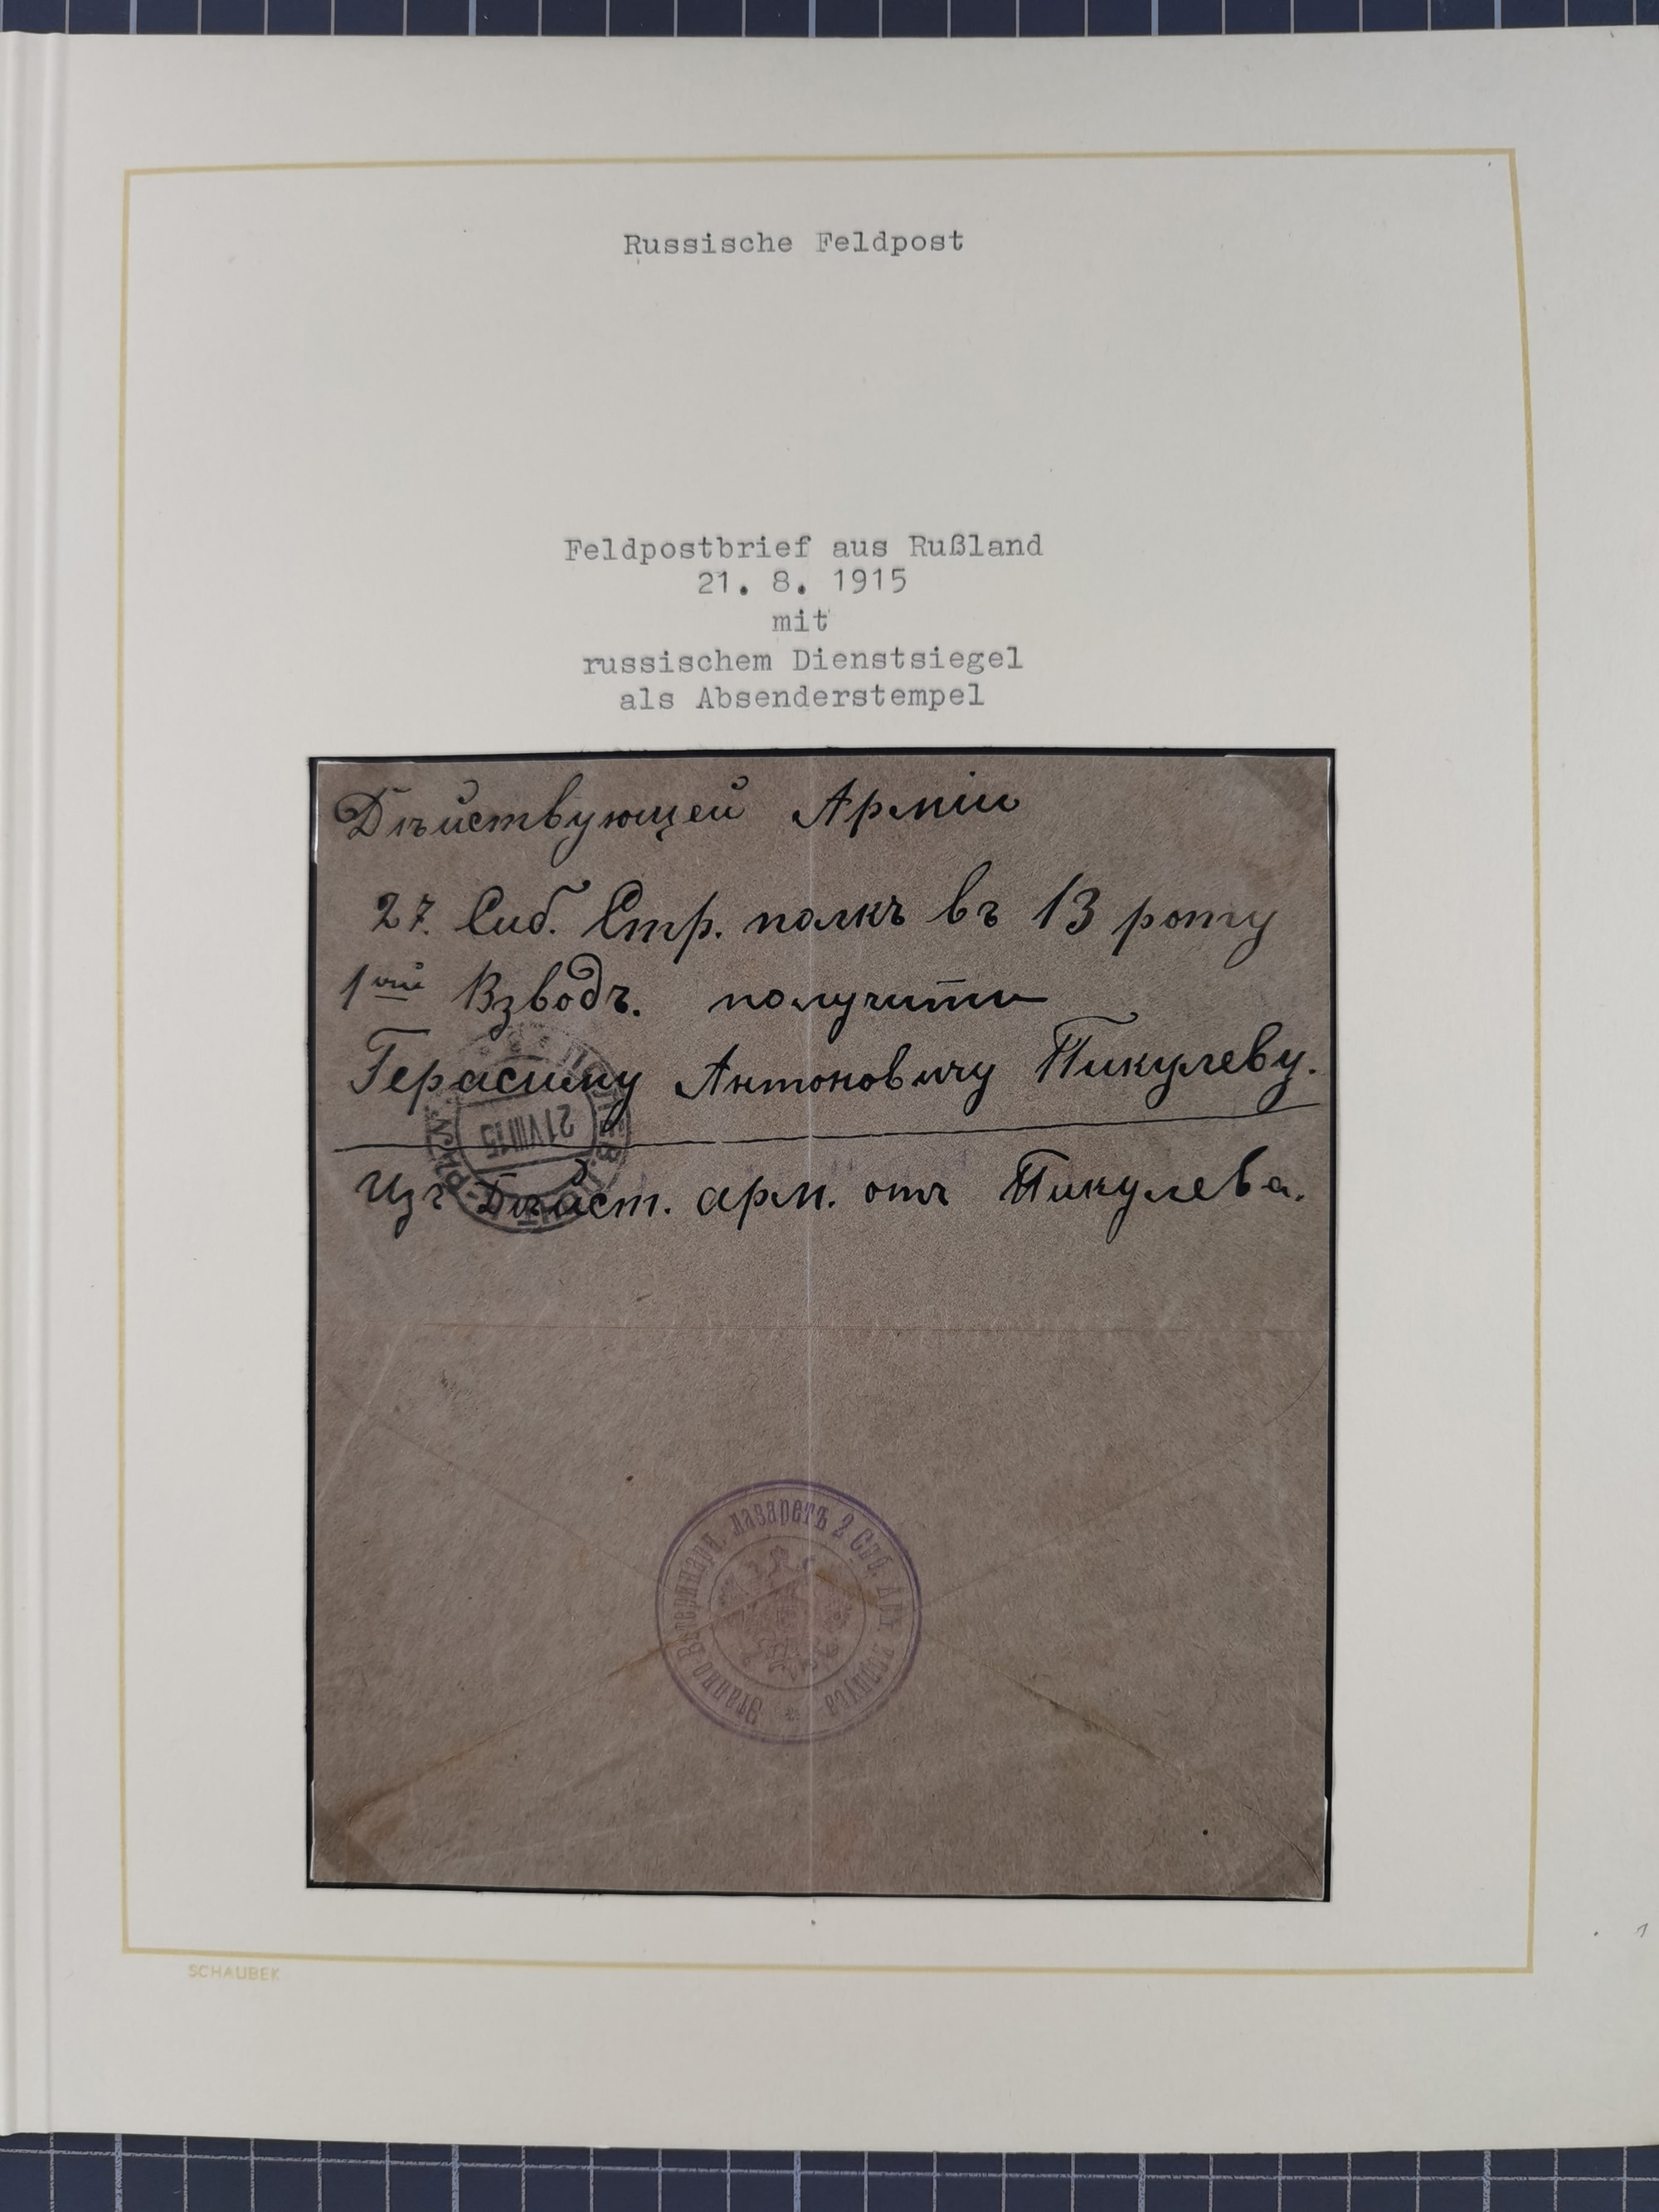 Russische Feldpost
Feldpostbrief aus Rußland
21. 8. 1915
mit
russischem Dienstsiegel
als Absenderstempel
Дѣйствующей Арміи
27. Сиб. Стр. полкъ въ 13 роту
1ый Взводъ. получить
Герасиму Антоновичу Пикулеву.
21 VIII 15
Изъ Дѣйст. арм. отъ Пикулева.
Этапно Ветеринарн. лазаретъ 2 Сиб. Арм. корпуса
SCHAUBEK